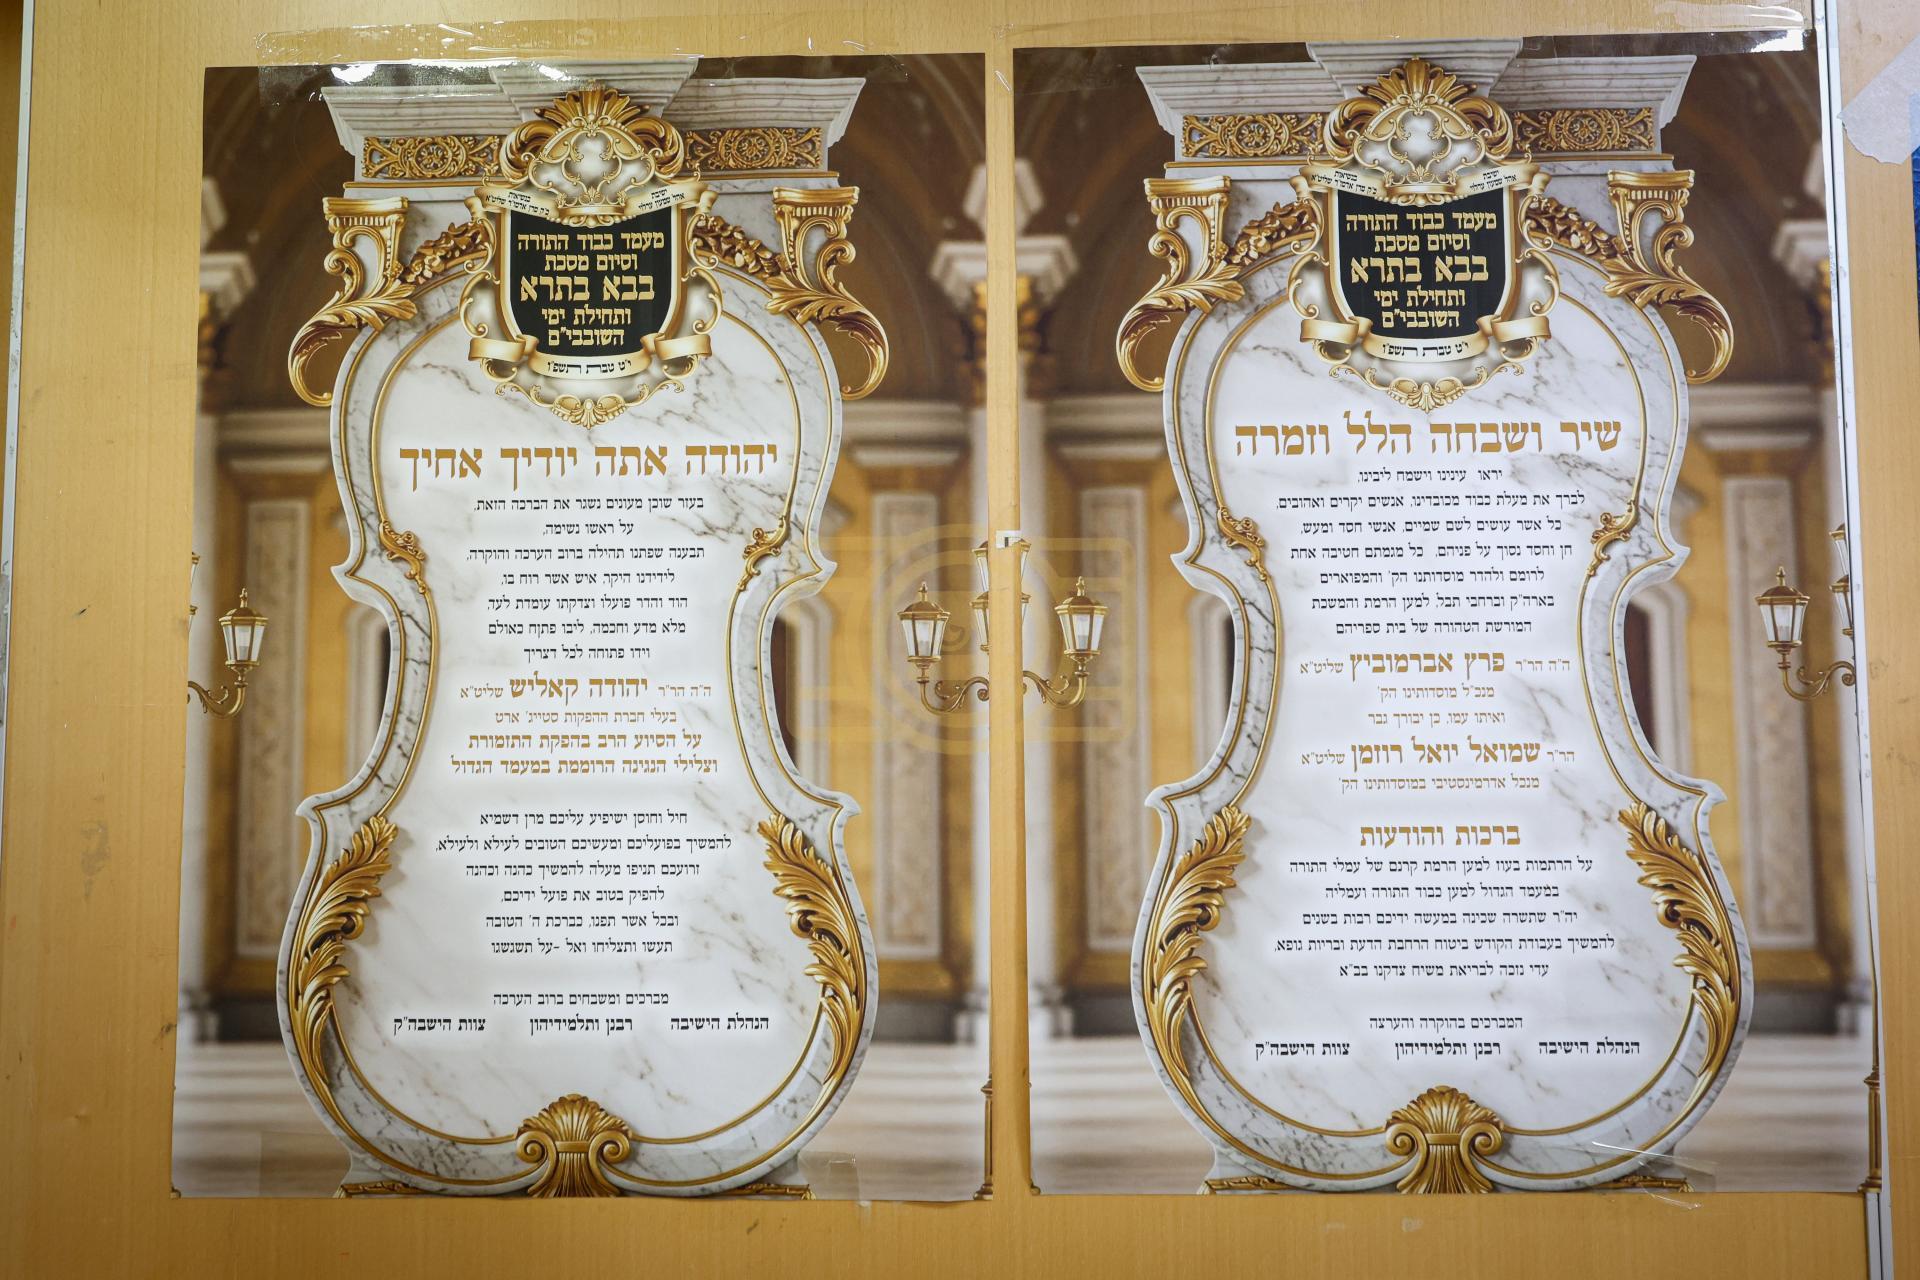 ישיבת
אהל שמעון ערלוי
בנשיאות
כ"ק מרן אדמו"ר שליט"א
מעמד כבוד התורה
וסיום מסכת
בבא בתרא
ותחילת ימי
השובבי"ם
י"ט טבת תשפ"ו
שיר ושבחה הלל וזמרה
יראו עינינו וישמח ליבינו,
לברך את מעלת כבוד מכובדינו, אנשים יקרים ואהובים,
כל אשר עושים לשם שמיים, אנשי חסד ומעש,
חן וחסד נסוך על פניהם, כל מגמתם חטיבה אחת
לרומם ולהדר מוסדותינו הק' והמפוארים
בארה"ק וברחבי תבל, למען הרמת והמשכת
המורשת הטהורה של בית ספריהם
ה"ה הר"ר פרץ אברמוביץ שליט"א
מנכ"ל מוסדותינו הק'
ואיתו עמו, כן יבורך גבר
הר"ר שמואל יואל רוזמן שליט"א
מנכל אדרמינסטיבי במוסדותינו הק'
ברכות והודעות
על הרתמות בעוז למען הרמת קרנם של עמלי התורה
במעמד הגדול למען כבוד התורה ועמליה
יה"ר שתשרה שכינה במעשה ידיכם רבות בשנים
להמשיך בעבודת הקודש ביטוח הרחבת הדעת ובריות גופא,
עדי נזכה לבריאת משיח צדקנו בב"א
המברכים בהוקרה והערצה
הנהלת הישיבה רבנן ותלמידיהון צוות הישבה"ק
ישיבת
אהל שמעון ערלוי
בנשיאות
כ"ק מרן אדמו"ר שליט"א
מעמד כבוד התורה
וסיום מסכת
בבא בתרא
ותחילת ימי
השובבי"ם
י"ט טבת תשפ"ו
יהודה אתה יודיך אחיך
בעזר שוכן מעונים נשגר את הברכה הזאת,
על ראשו נשימה,
תבענה שפתנו תהילה ברוב הערכה והוקרה,
לידידנו היקר, איש אשר רוח בו,
הוד והדר פועלו וצדקתו עומדת לעד,
מלא מדע וחכמה, ליבו פתוח כאולם
וידו פתוחה לכל דצריך
ה"ה הר"ר יהודה קאליש שליט"א
בעלי חברת ההפקות סטייג' ארט
על הסיוע הרב בהפקת התזמורת
וצלילי הנגינה הרוממת במעמד הגדול
חיל וחוסן ישיפיע עליכם מרן דשמיא
להמשיך בפועליכם ומעשיכם הטובים לעילא ולעילא,
זרועכם תניפו מעלה להמשיך כהנה וכהנה
להפיק בטוב את פועל ידיכם,
ובכל אשר תפנו, כברכת ה' הטובה
תעשו ותצליחו ואל -על תשגשגו
מברכים ומשבחים ברוב הערכה
הנהלת הישיבה רבנן ותלמידיהון צוות הישבה"ק